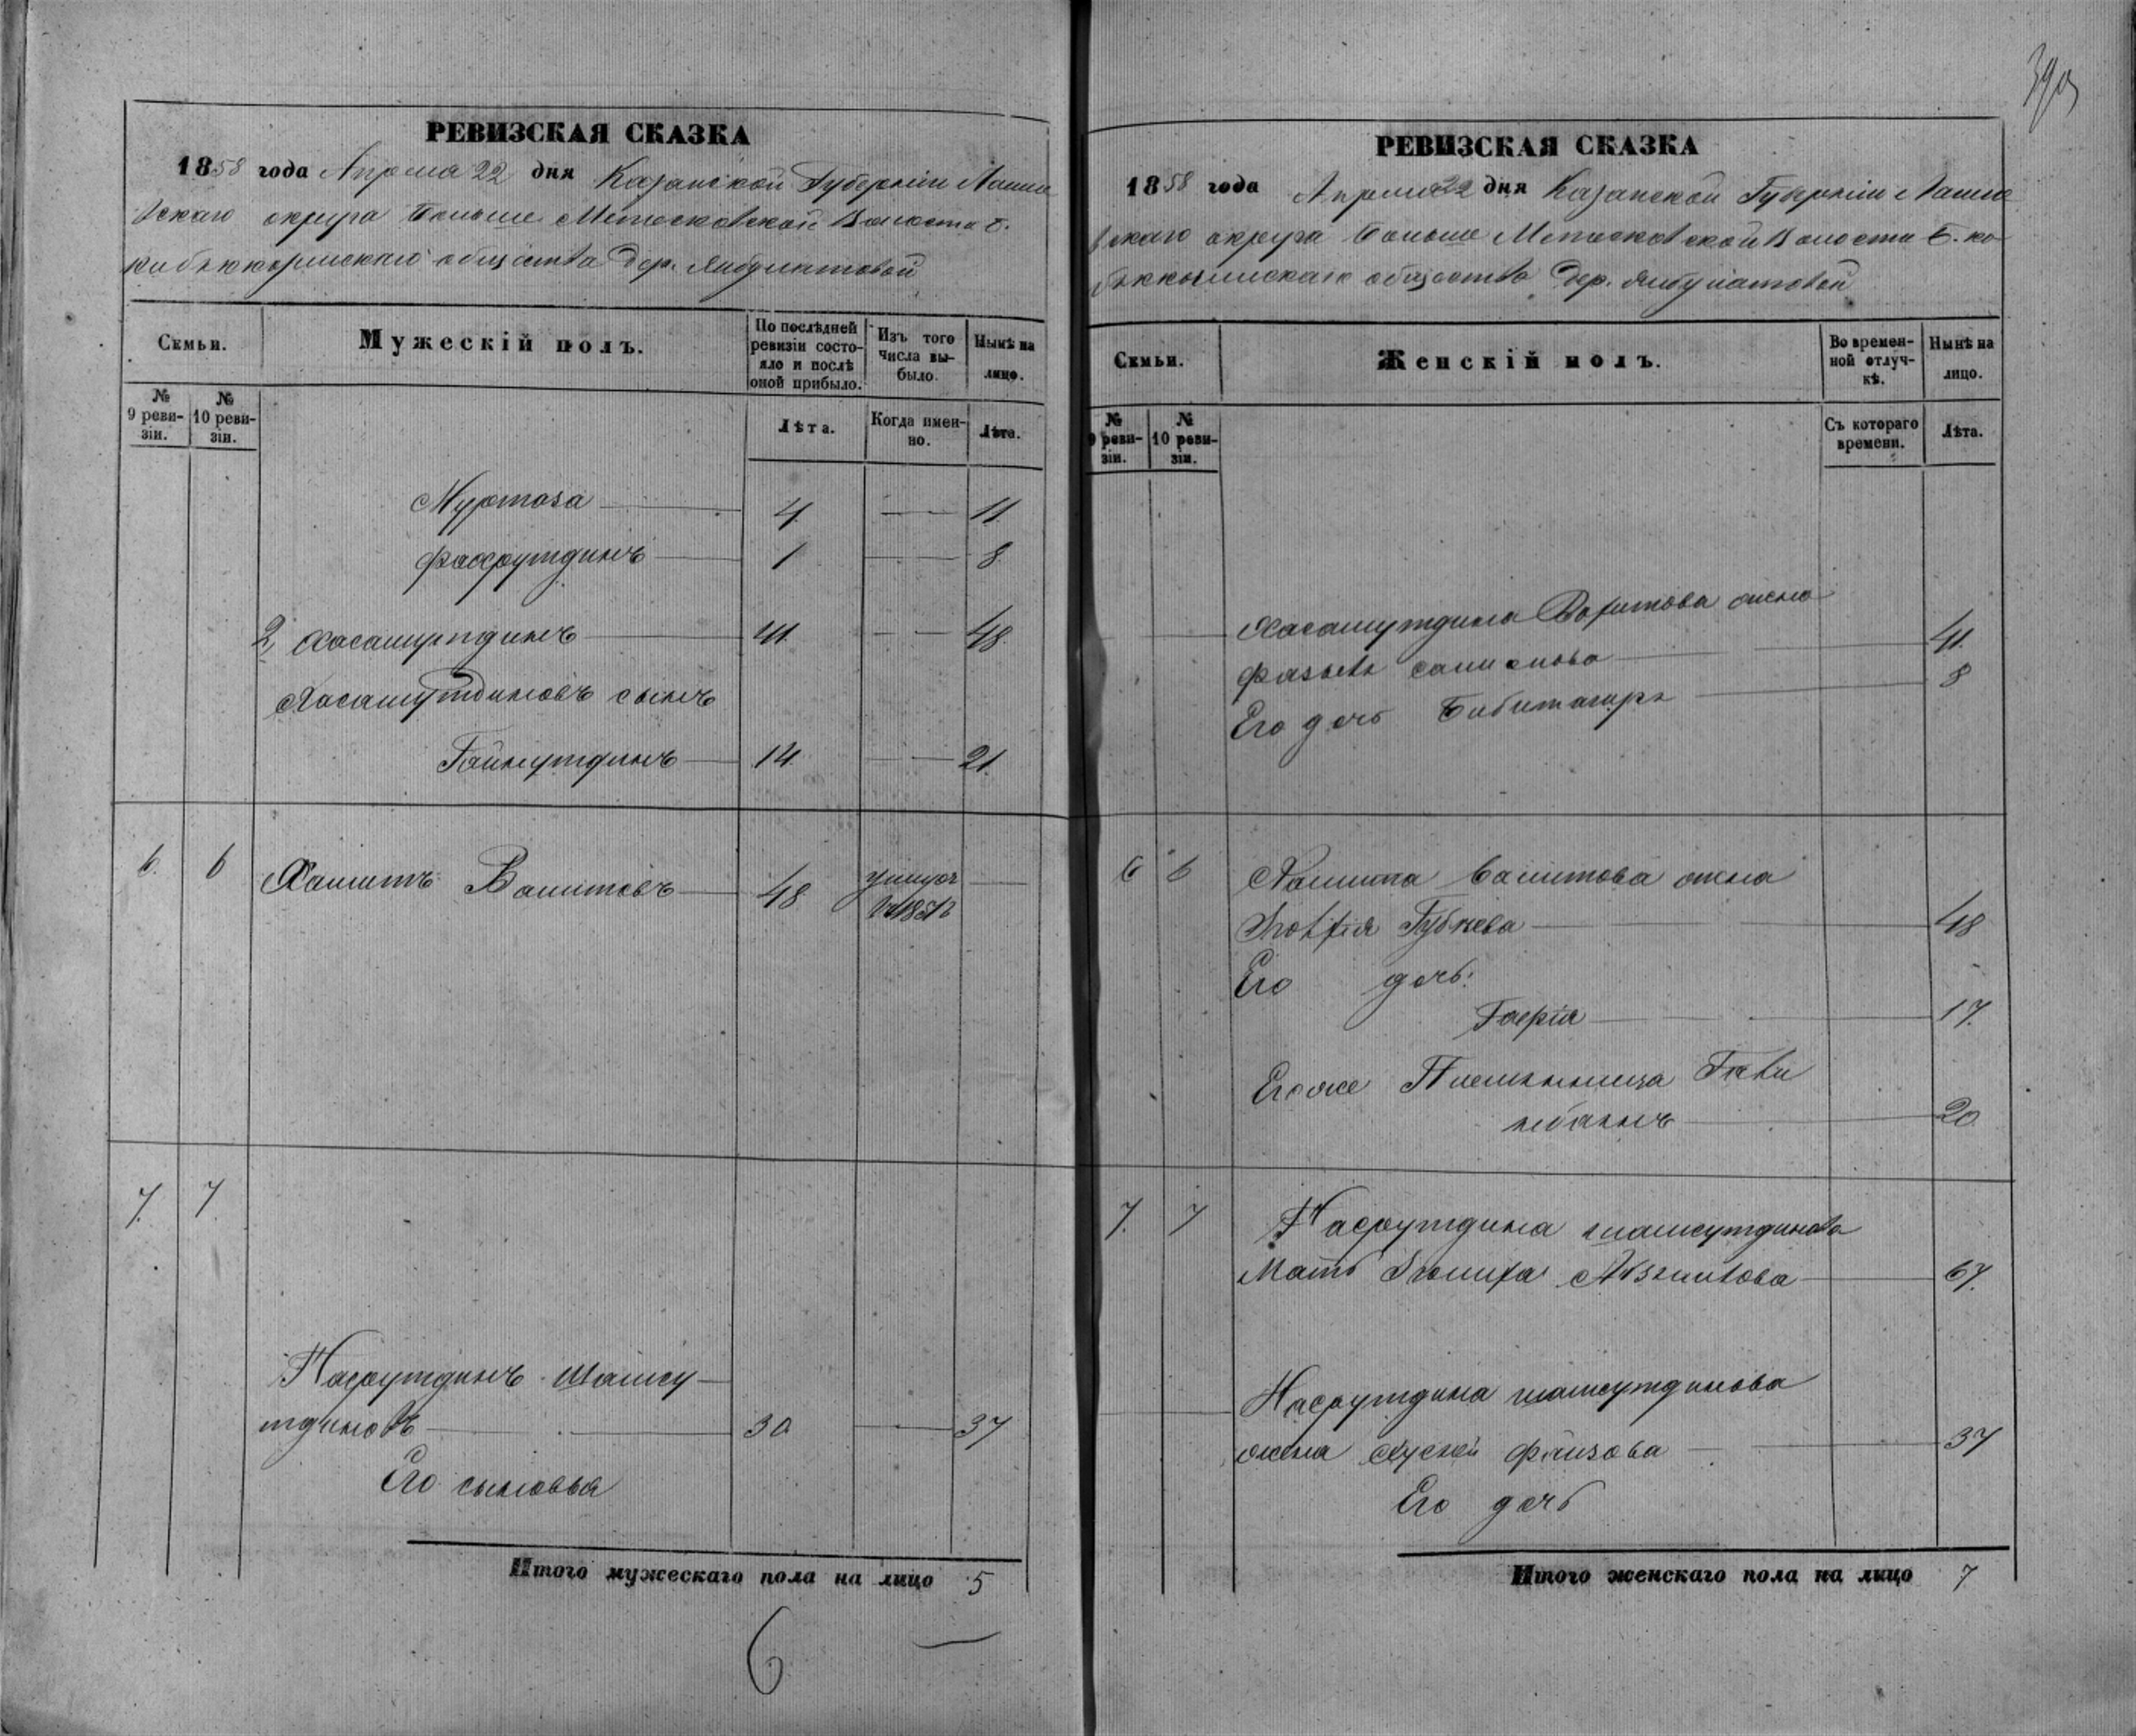 РЕВИЗСКАЯ СКАЗКА
1858 года Апреля 22 дня Казанской Губернии Лаише
вскаго округа Больше Метесковской Волости Б.
кибяккозинскаго общества дер. Янбулатовой
Семьи.
Мужескій полъ.
По послѣдней ревизіи состояло и послѣ оной прибыло.
Изъ того числа выбыло.
Нынѣ на лицо.
№ 9 ревизіи.
№ 10 ревизіи.
Лѣта.
Когда именно.
Лѣта.
Муртаза 4 11.
Фахрутдинъ 1 8.
2, Хасамутдинъ 41 48
Хасамутдиновъ сынъ
Гайнутдинъ 14 21.
6. 6 Хамитъ Вамитовъ 48
7. 7.
Насрутдинъ Шамсу
тдиновъ 30 37
Его сыновья
Итого мужескаго пола на лицо 5
6
РЕВИЗСКАЯ СКАЗКА
1858 года Апреля 22 дня Казанской Губерніи Лаише
вскаго округа Больше Метесковской Волости Б. ки
бяккозинскаго общества Дер. Янбулатовой
Семьи.
Женскій полъ.
Во временной отлучкѣ.
Нынѣ на лицо.
№ 9 ревизіи.
№ 10 ревизіи.
Съ котораго времени.
Лѣта.
Хасамутдина жена
41.
Его дочь 8
6 6 Хамита Вамитова жена
Губнева 48
Его дочь:
17.
Егоже Племянница
20
7. 7 Насрутдина шамсутдинова
Мать 67.
Насрутдина шамсутдинова
жена Фаизова 37
Его дочь
Итого женскаго пола на лицо 7